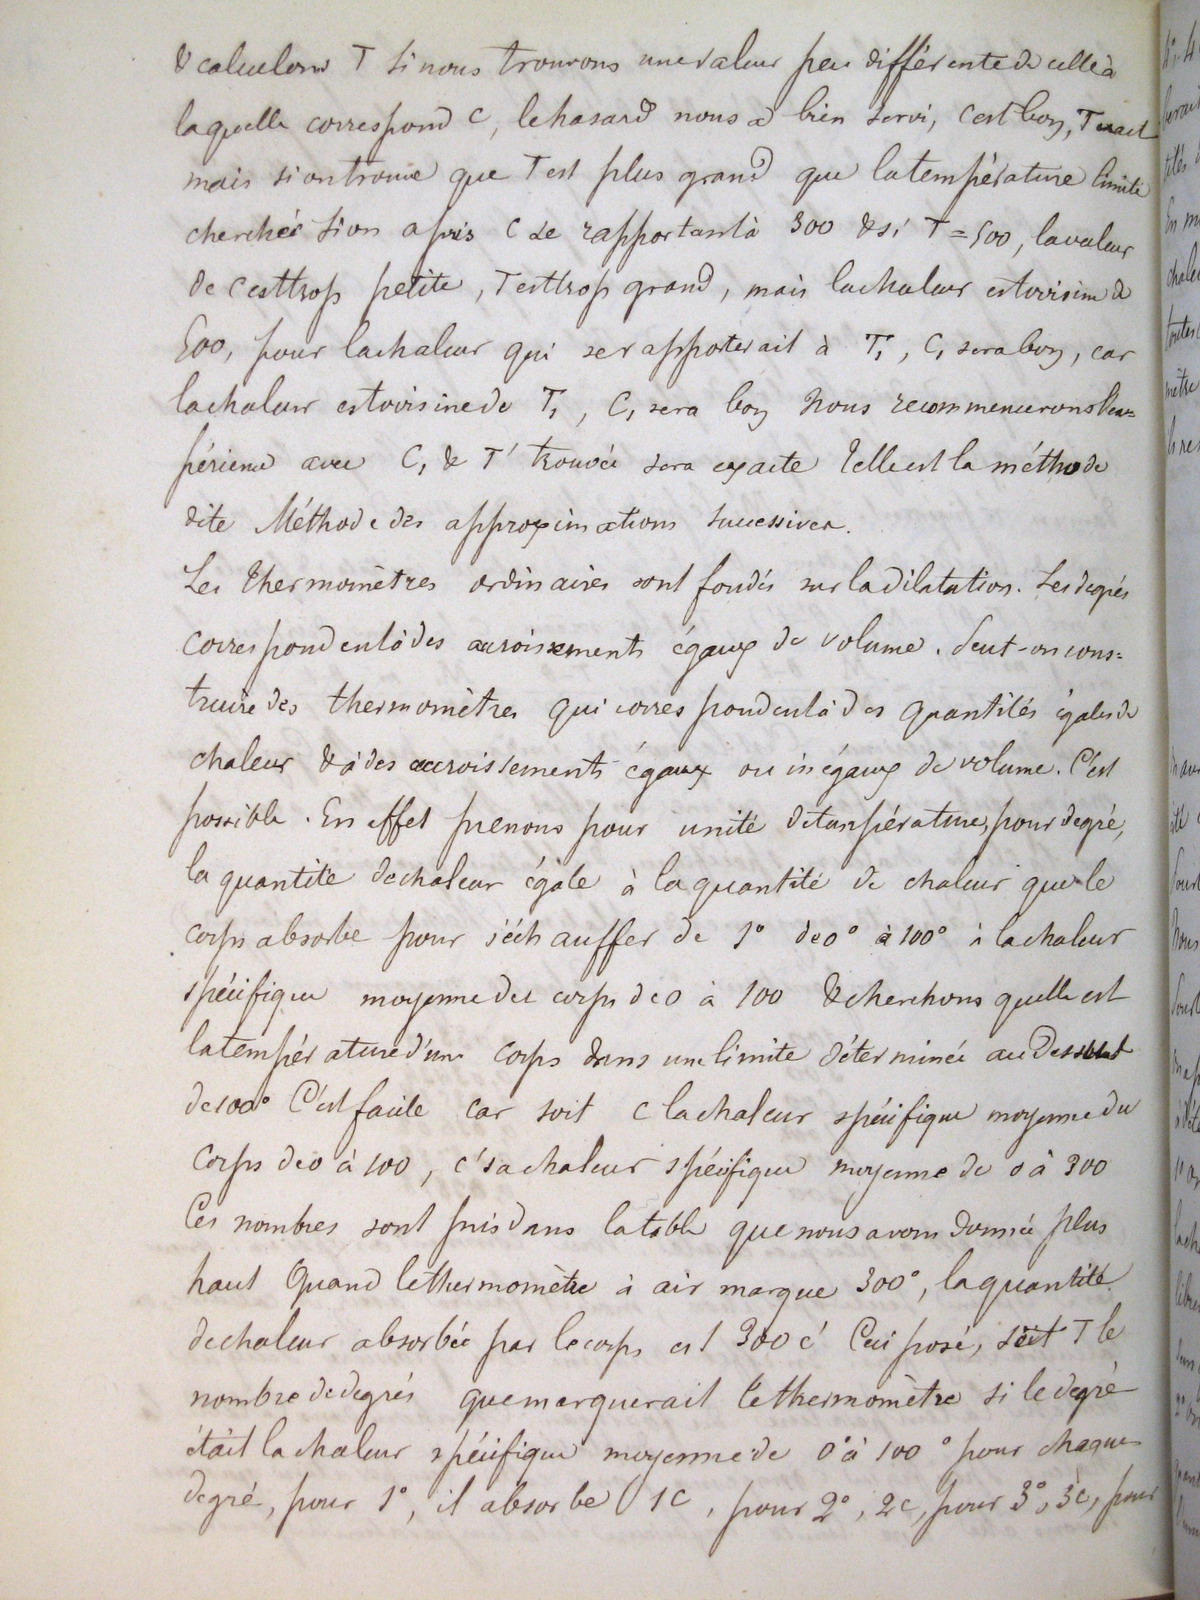 & calculons T Si nous trouvons une valeur peu différente de celle à
laquelle correspond C, le hasard nous a bien servi, C est bon, T exact
mais si on trouve que T est plus grand que la température limite
cherchée Si on a pris C se rapportant à 300 & si T = 500, la valeur
de C est trop petite, T est trop grand, mais la chaleur est voisine de
500, pour la chaleur qui se rapporterait à T₁, C₁ sera bon, car
la chaleur est voisine de T₁, C₁ sera bon Nous recommencerons l'ex=
périence avec C₁ & T' trouvée sera exacte Telle est la méthode
dite Méthode des approximations successives.
Les Thermomètres ordinaires sont fondés sur la dilatation. Les degrés
correspondent à des accroissements égaux de volume. Peut-on cons=
truire des thermomètres qui correspondent à des quantités égales de
chaleur & à des accroissements égaux ou inégaux de volume. C'est
possible. En effet prenons pour unité de température, pour degré,
la quantité de chaleur égale à la quantité de chaleur que le
corps absorbe pour s'échauffer de 1° de 0° à 100° à la chaleur
spécifique moyenne des corps de 0 à 100 & cherchons quelle est
la température d'un corps dans une limite déterminée au dessus
de 100° C'est facile car soit C la chaleur spécifique moyenne du
corps de 0 à 100, c' sa chaleur spécifique moyenne de 0 à 300
Ces nombres sont pris dans la table que nous avons donnée plus
haut Quand le thermomètre à air marque 300°, la quantité
de chaleur absorbée par le corps est 300 c' Ceci posé, soit T le
nombre de degrés que marquerait le thermomètre si le degré
était la chaleur spécifique moyenne de 0° à 100° pour chaque
degré, pour 1°, il absorbe 1C, pour 2°, 2C, pour 3°, 3C, pour